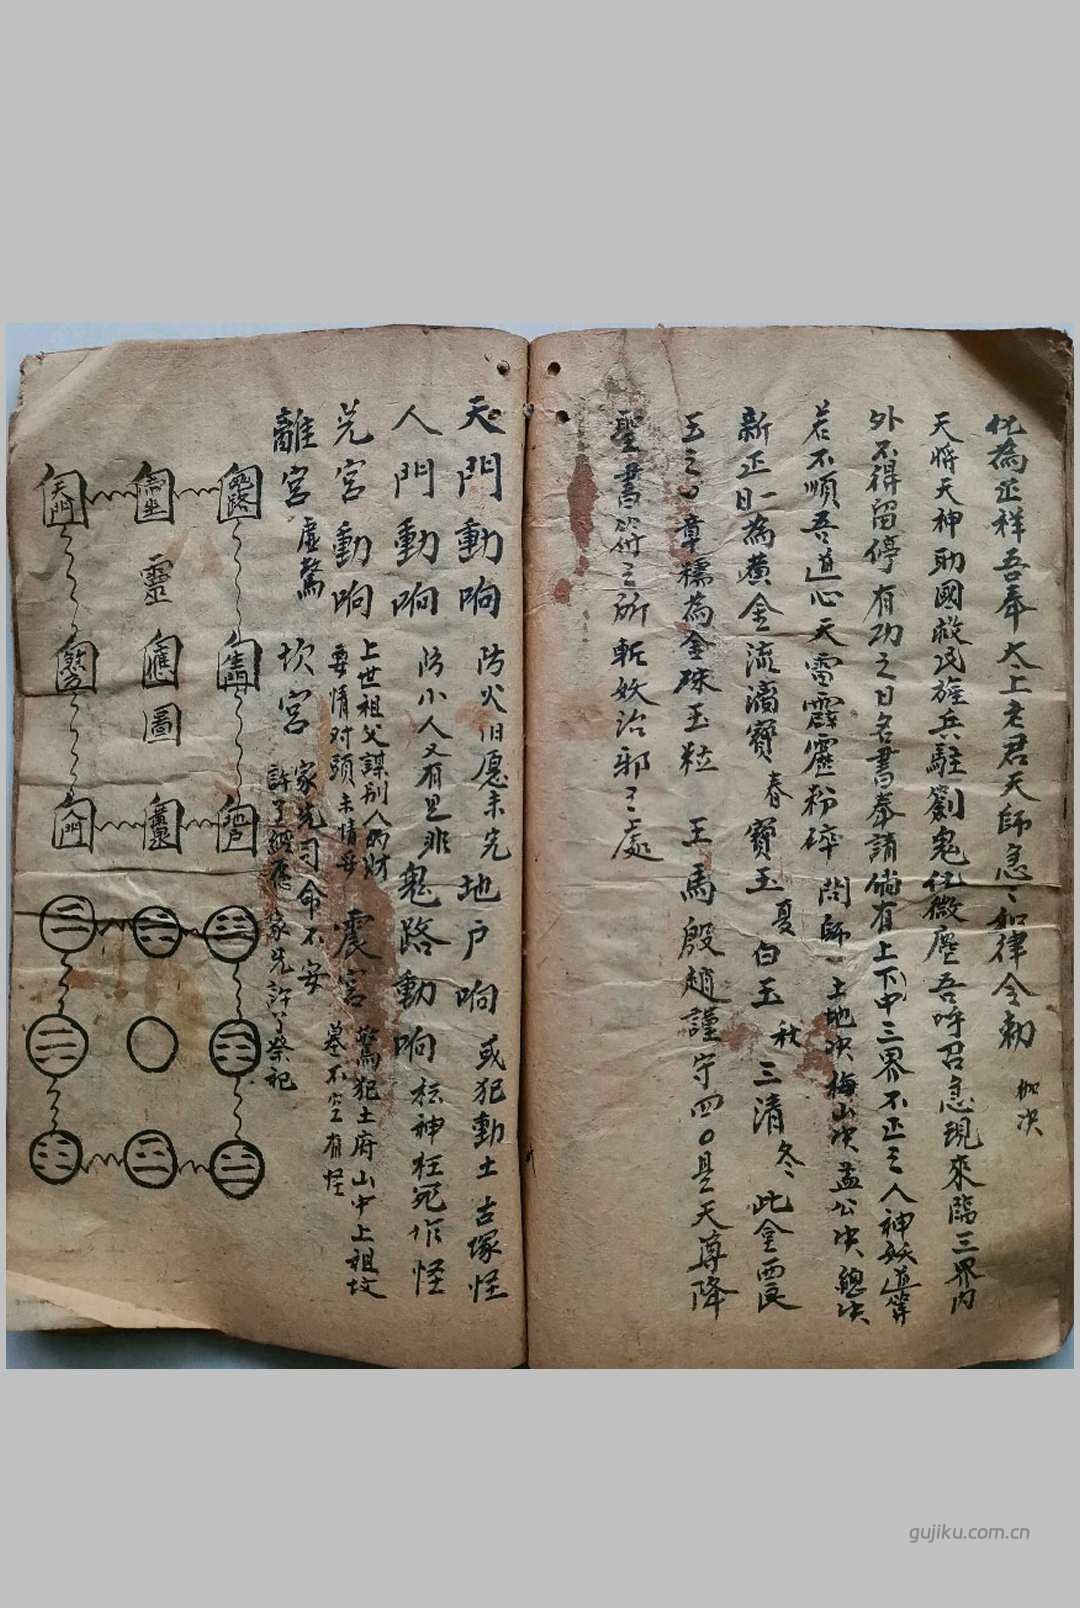 化為正祥吾奉太上老君天師急〻如律令勅
天將天神助國救民旌兵駐劄鬼化微塵吾呼召急現來臨三界内
外不得留停有功之日名書奏請倘有上下中三界不正之人神妖道等
若不順吾道心天雷霹靂粉碎 問師 土地決梅山決孟公決總決
新正日一為黃金流濟寶 春 寶玉 夏 白玉 秋 三清 冬 此金
玉之 章糯為金珠玉粒 王馬殷趙謹守四 是天尊降
聖書符之所斬妖治邪之處
天門動响 防火旧愿未完 地户响 或犯動土古塚怪
人門動响 防小人又有是非 鬼路動响 标神枉死 怪
兑宫動响 上世祖父謀别人的財
要情对頭未情妥 震宫 驚犯土府山中上祖坟
墓不空有怪
離宫 虚驚 坎宫 家先司命不安
許了經愿 家先許了祭祀
鬼路 坐 天門
靈
生門 應
圖
地户 人門
gujiku.com.cn